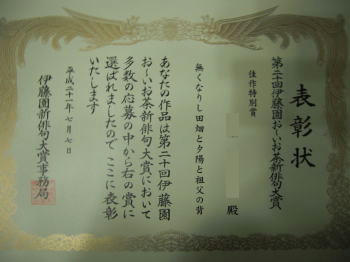 表彰状
第二十回伊藤園お～いお茶新俳句大賞
佳作特別賞
殿
無くなりし田畑と夕陽と祖父の背
あなたの作品は第二十回伊藤園
お～いお茶新俳句大賞において
多数の応募の中から右の賞に
選ばれましたので ここに表彰
いたします
平成二十一年七月七日
伊藤園新俳句大賞事務局